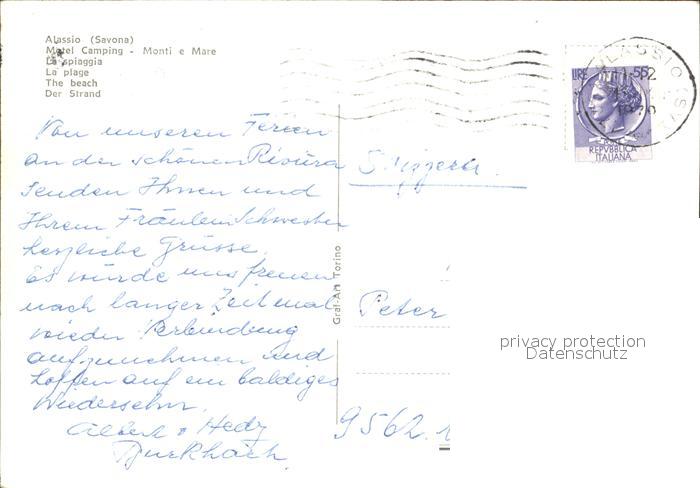 Alassio (Savona)
Motel Camping - Monti e Mare
La spiaggia
La plage
The beach
Der Strand
Von unseren Ferien
an der schönen Riviera
senden Ihnen und
Ihrem Fräulein Schwester
herzliche Grüsse.
Es würde uns freuen
nach langer Zeit mal
wieder Verbindung
aufzunehmen und
hoffen auf ein baldiges
Wiedersehn.
Albert + Hedy
Burkhart
Graf-Art Torino
ALASSIO (SV)
LIRE 55
REPVBBLICA
ITALIANA
Svizzera.
Peter
privacy protection
Datenschutz
9562